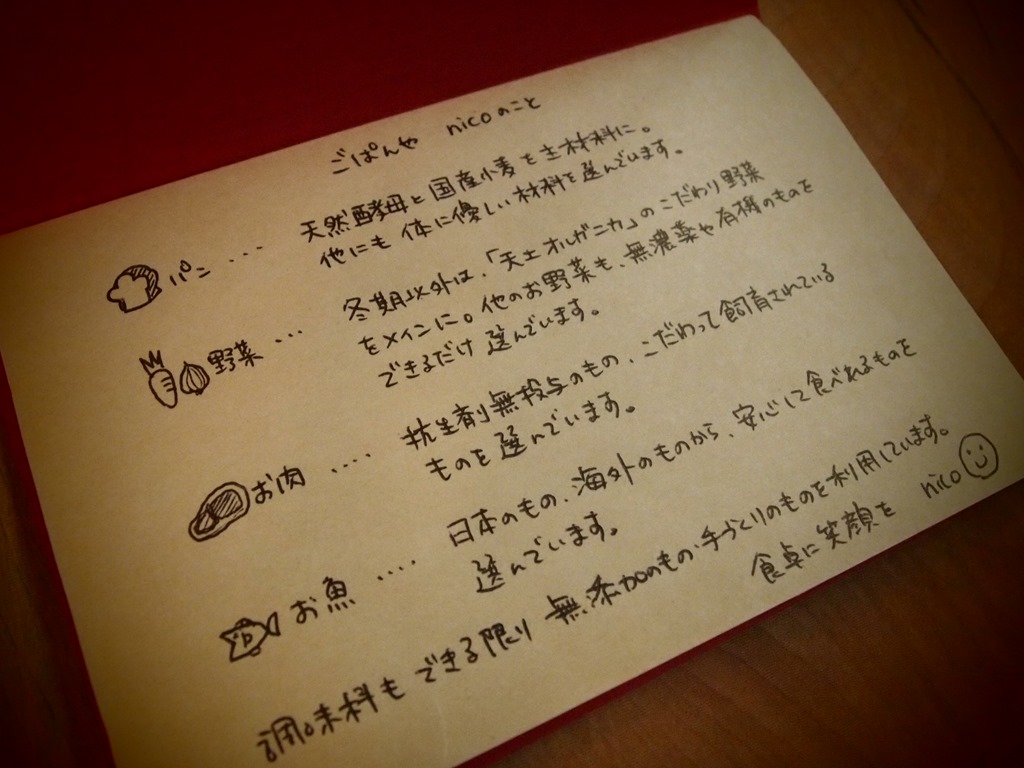 ごぱんや nicoのこと
パン ... 天然酵母と国産小麦を主材料に。
他にも 体に優しい材料を選んでいます。
野菜 ... 冬期以外は、「天土オルガニカ」のこだわり野菜
をメインに。他のお野菜も、無農薬や有機のものを
できるだけ 選んでいます。
お肉 .... 抗生剤無投与のもの、こだわって飼育されている
ものを選んでいます。
お魚 .... 日本のもの、海外のものから、安心して食べれるものを
選んでいます。
調味料も できる限り 無添加のもの・手づくりのものを利用しています。
食卓に笑顔を nico